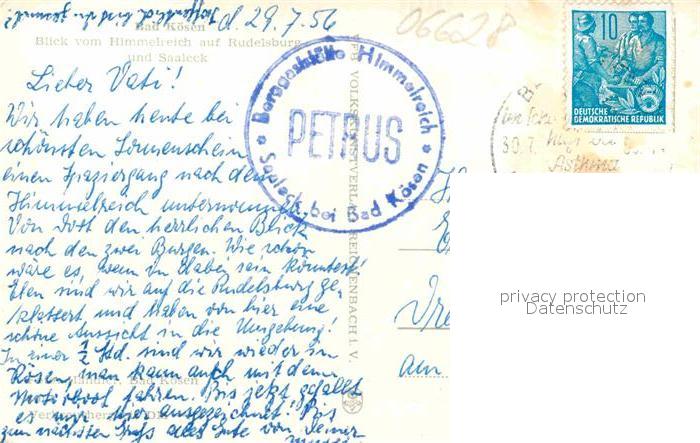 d 29.7.56
Bad Kösen
Blick vom Himmelreich auf Rudelsburg
und Saaleck
06628
10
DEUTSCHE
DEMOKRATISCHE REPUBLIK
Berggaststätte Himmelreich
PETRUS
Saaleck bei Bad Kösen
30.7.
Asthma
Lieber Vati!
Wir haben heute bei
schönsten Sonnenschein
einen Spaziergang nach dem
Himmelreich unternommen.
Von dort den herrlichen Blick
nach den zwei Burgen. Wie schön
wäre es, wenn Du dabei sein könntest!
Eben sind wir auf die Rudelsburg ge-
klettert und haben von hier eine
schöne Aussicht in die Umgebung!
In einer 1/2 Std. sind wir wieder in
Kösen, man kann auch mit dem
Motorboot fahren. Bis jetzt gefällt
es mir hier ausgezeichnet! Bis
zum nächsten Gruß alles Gute von Deiner
Händler, Bad Kösen
VEB VOLKSKUNSTVERLAG REICHENBACH I. V.
Dre
am
privacy protection
Datenschutz